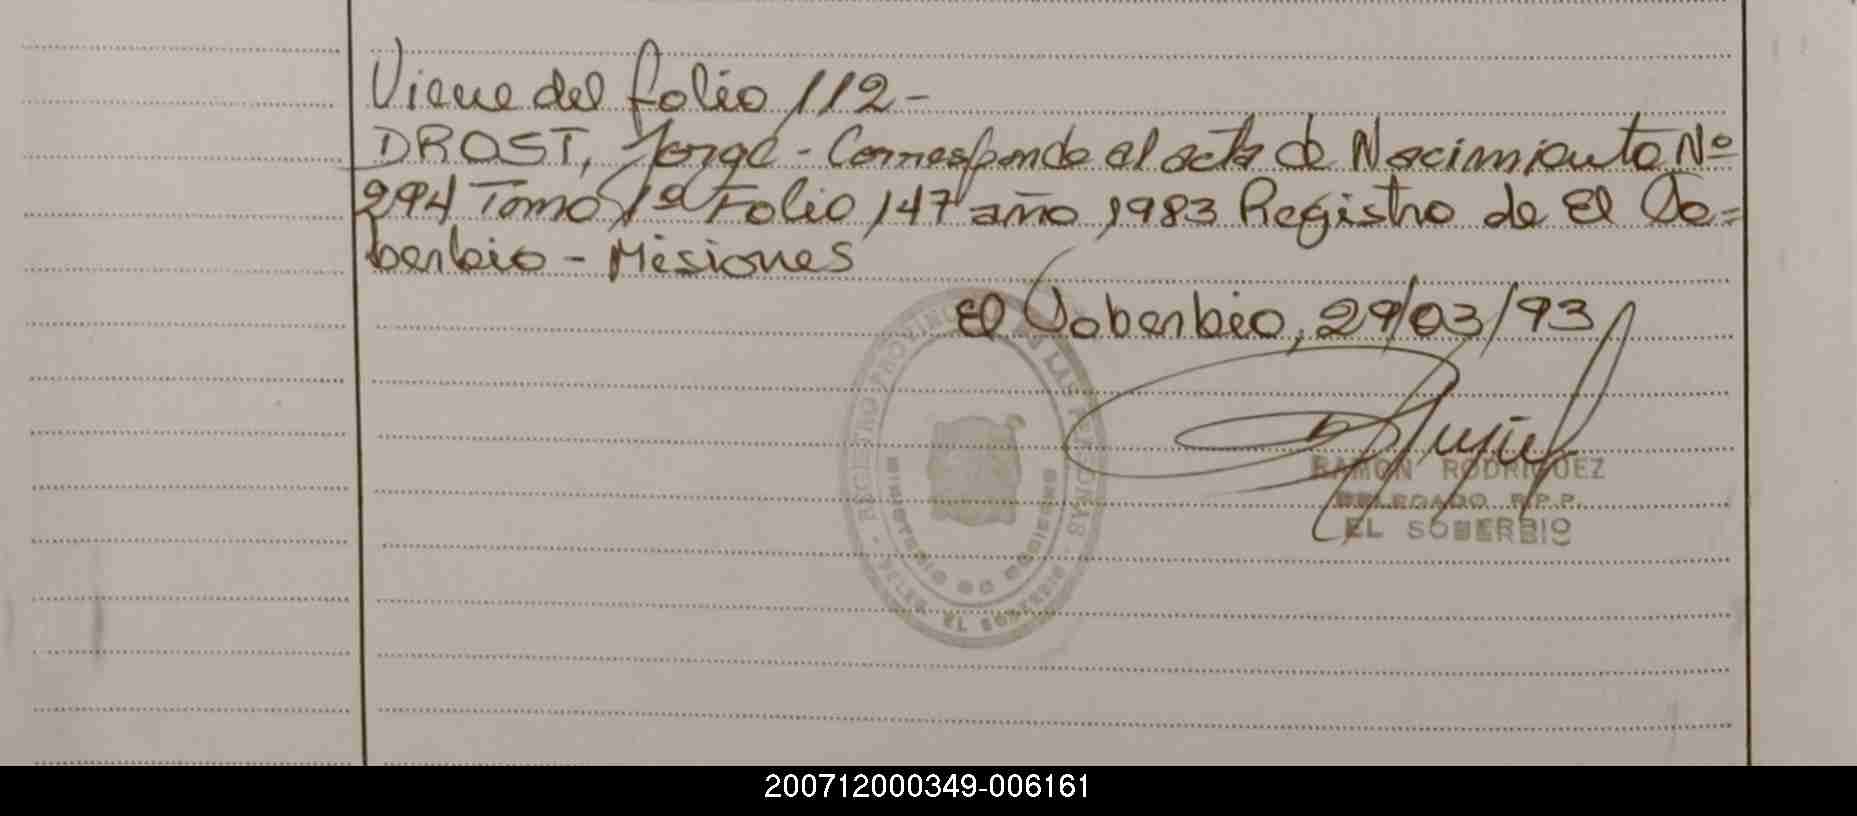 Viene del folio 112-
DROST, Jorge - Corresponde al acta de Nacimiento Nº
294 Tomo 1º Folio 147 año 1983 Registro de El So=
berbio - Misiones
El Soberbio, 29/03/93
REGISTRO PROVINCIAL DE LAS PERSONAS
MINISTERIO DE GOBIERNO
EL SOBERBIO
RAMON RODRIGUEZ
DELEGADO R.P.P.
EL SOBERBIO
200712000349-006161